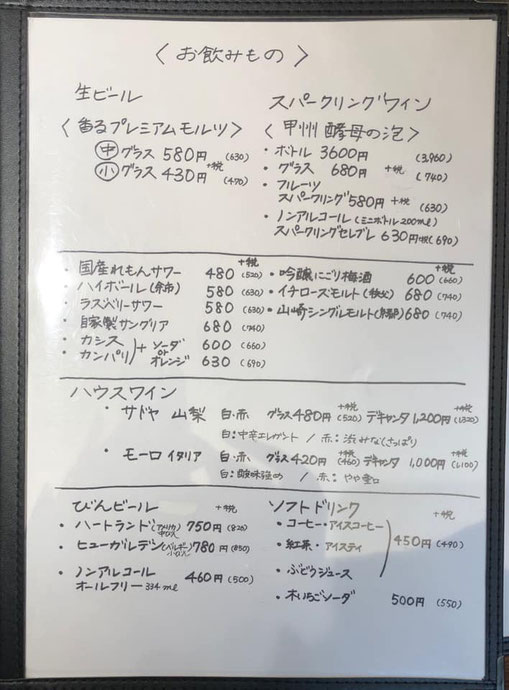 〈 お飲みもの 〉
生ビール
〈 香るプレミアムモルツ 〉
中 グラス 580円 (630)
小 グラス 430円 +税 (470)
スパークリングワイン
〈 甲州 酵母の泡 〉
・ボトル 3600円 (3,960)
・グラス 680円 +税 (740)
・フルーツ
スパークリング 580円 +税 (630)
・ノンアルコール (ミニボトル200ml)
スパークリングセレブレ 630円 +税 (690)
+税
・国産れもんサワー 480 (520)
・ハイボール (余市) 580 (630)
・ラズベリーサワー 580 (630)
・自家製サングリア 680 (740)
・カシス + ソーダ 600 (660)
・カンパリ or オレンジ 630 (690)
+税
・吟醸にごり梅酒 600 (660)
・イチローズモルト (秩父) 680 (740)
・山崎シングルモルト 680 (740)
ハウスワイン
・サドヤ 山梨 白・赤 グラス 480円 +税 (520) デキャンタ 1,200円 +税 (1,320)
白：中辛エレガント / 赤：渋みなくさっぱり
・モーロ イタリア 白・赤 グラス 420円 +税 (460) デキャンタ 1,000円 +税 (1,100)
白：酸味強め / 赤：やや重口
びんビール +税
・ハートランド 750円 (820)
・ヒューガルデン (ベルギー 小びん) 780円 (850)
・ノンアルコール 460円 (500)
オールフリー 334ml
ソフトドリンク +税
・コーヒー・アイスコーヒー
・紅茶・アイスティ 450円 (490)
・ぶどうジュース
・木いちごソーダ 500円 (550)